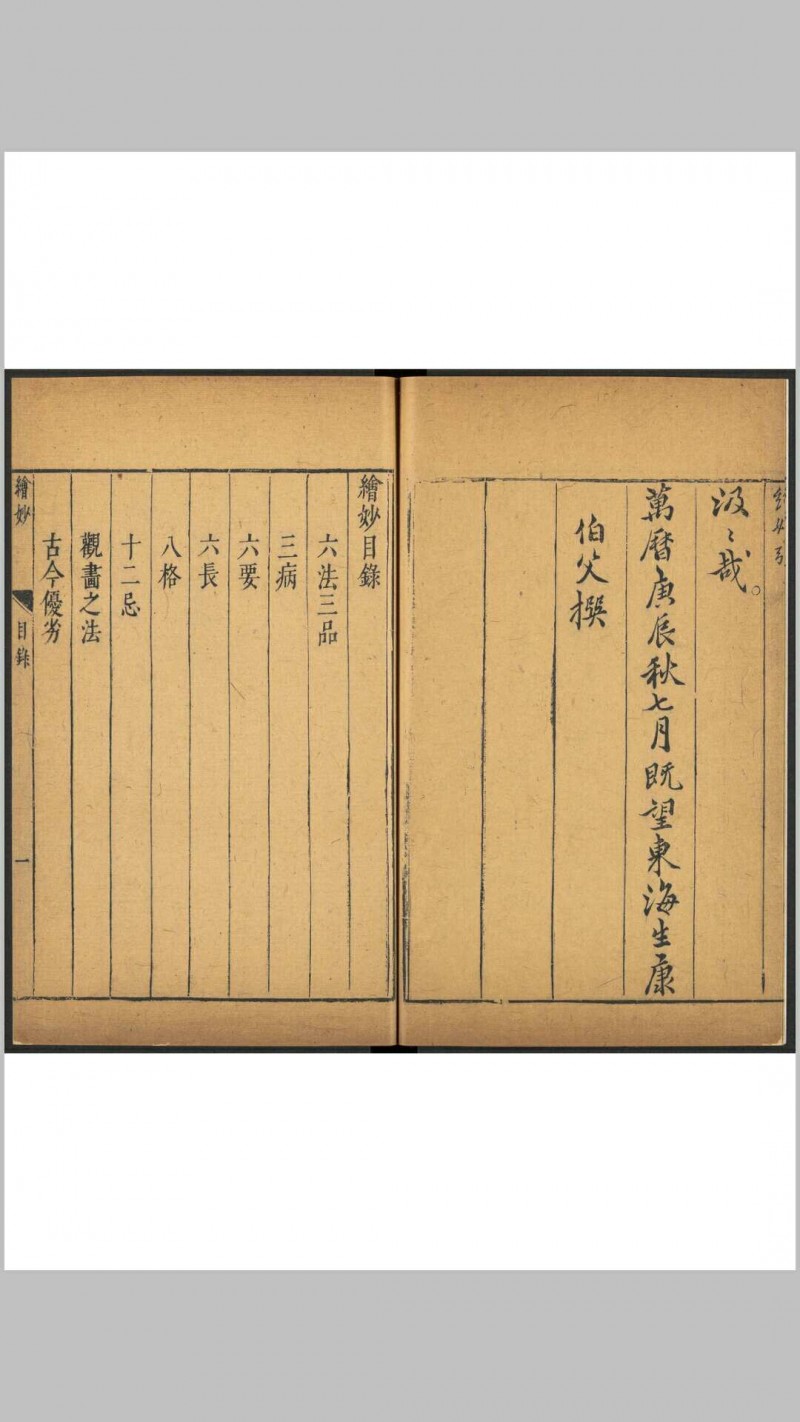 汲〻哉。
萬曆庚辰秋七月既望東海生康
伯父撰
繪妙目錄
六法三品
三病
六要
六長
八格
十二忌
觀畫之法
古今優劣
繪妙
目錄
一